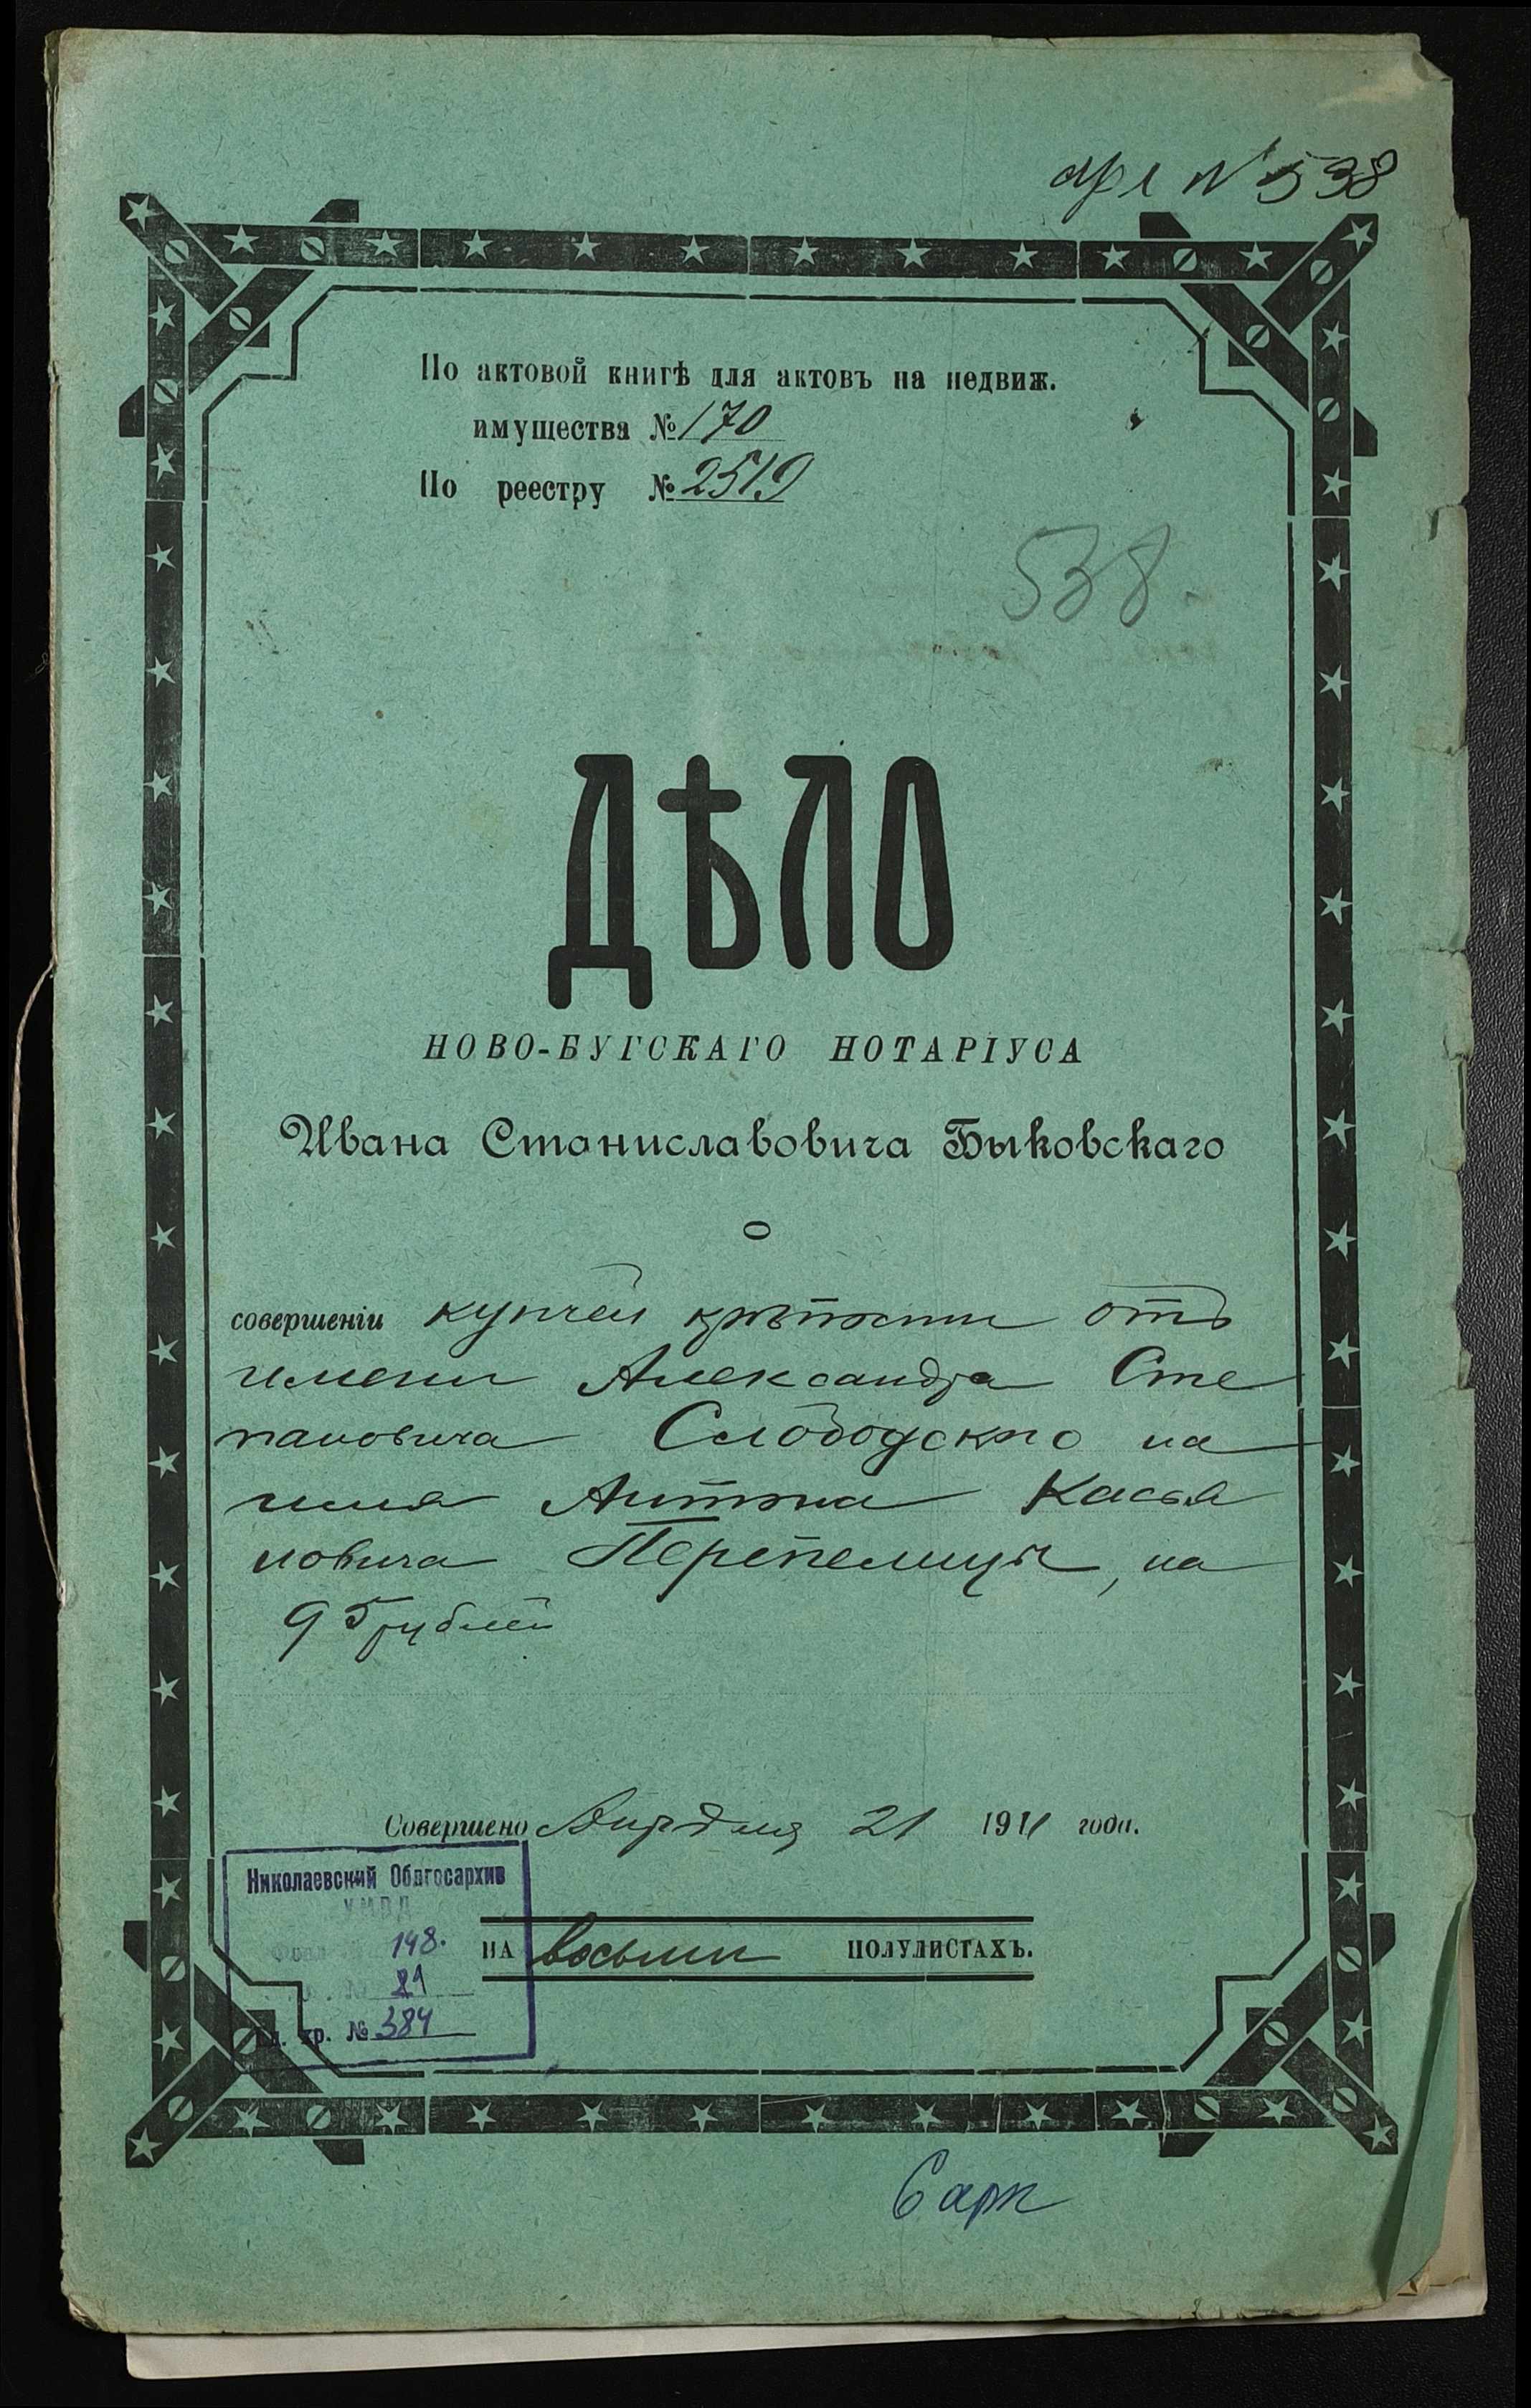 арх №538
По актовой книгѣ для актовъ на недвиж.
имущества № 170
По реестру № 2519
538
ДѢЛО
НОВО-БУГСКАГО НОТАРІУСА
Ивана Станиславовича Быковскаго
О
совершеніи купчей крѣпости отъ
имени Александра Сте
пановича Слободского на
имя Антона Касья
новича Перепелицы, на
95 рублей
Совершено 21 1911 года.
Николаевский Облгосархив
УМВД
148.
21
ед. хр. № 384
НА восьми ПОЛУЛИСТАХЪ.